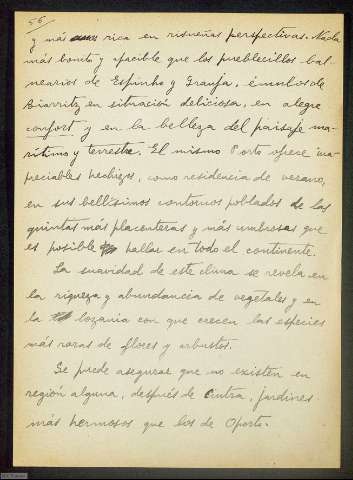 56/
y más rica en risueñas perspectivas. Nada
más bonito y apacible que los pueblecillos bal-
nearios de Espinho y Granja, émulos de
Biarritz en situación deliciosa, en alegre
confort y en la belleza del paisaje ma-
rítimo y terrestre. El mismo Porto ofrece ina-
preciables hechizos, como residencia de verano,
en sus bellísimos contornos poblados de las
quintas más placenteras y más umbrosas que
es posible hallar en todo el continente.
La suavidad de este clima se revela en
la riqueza y abundancia de vegetales y en
la lozanía con que crecen las especies
más raras de flores y arbustos.
Se puede asegurar que no existen en
región alguna, después de Cintra, jardines
más hermosos que los de Oporto.